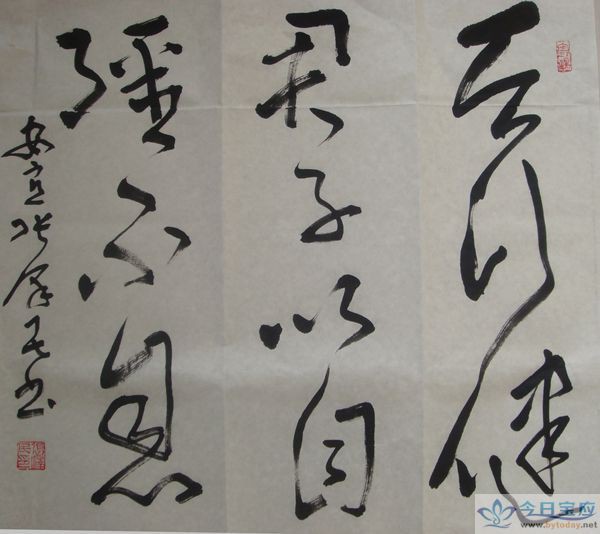 天行健
君子以自
彊不息
安宜
书
今日宝应
www.bytoday.net